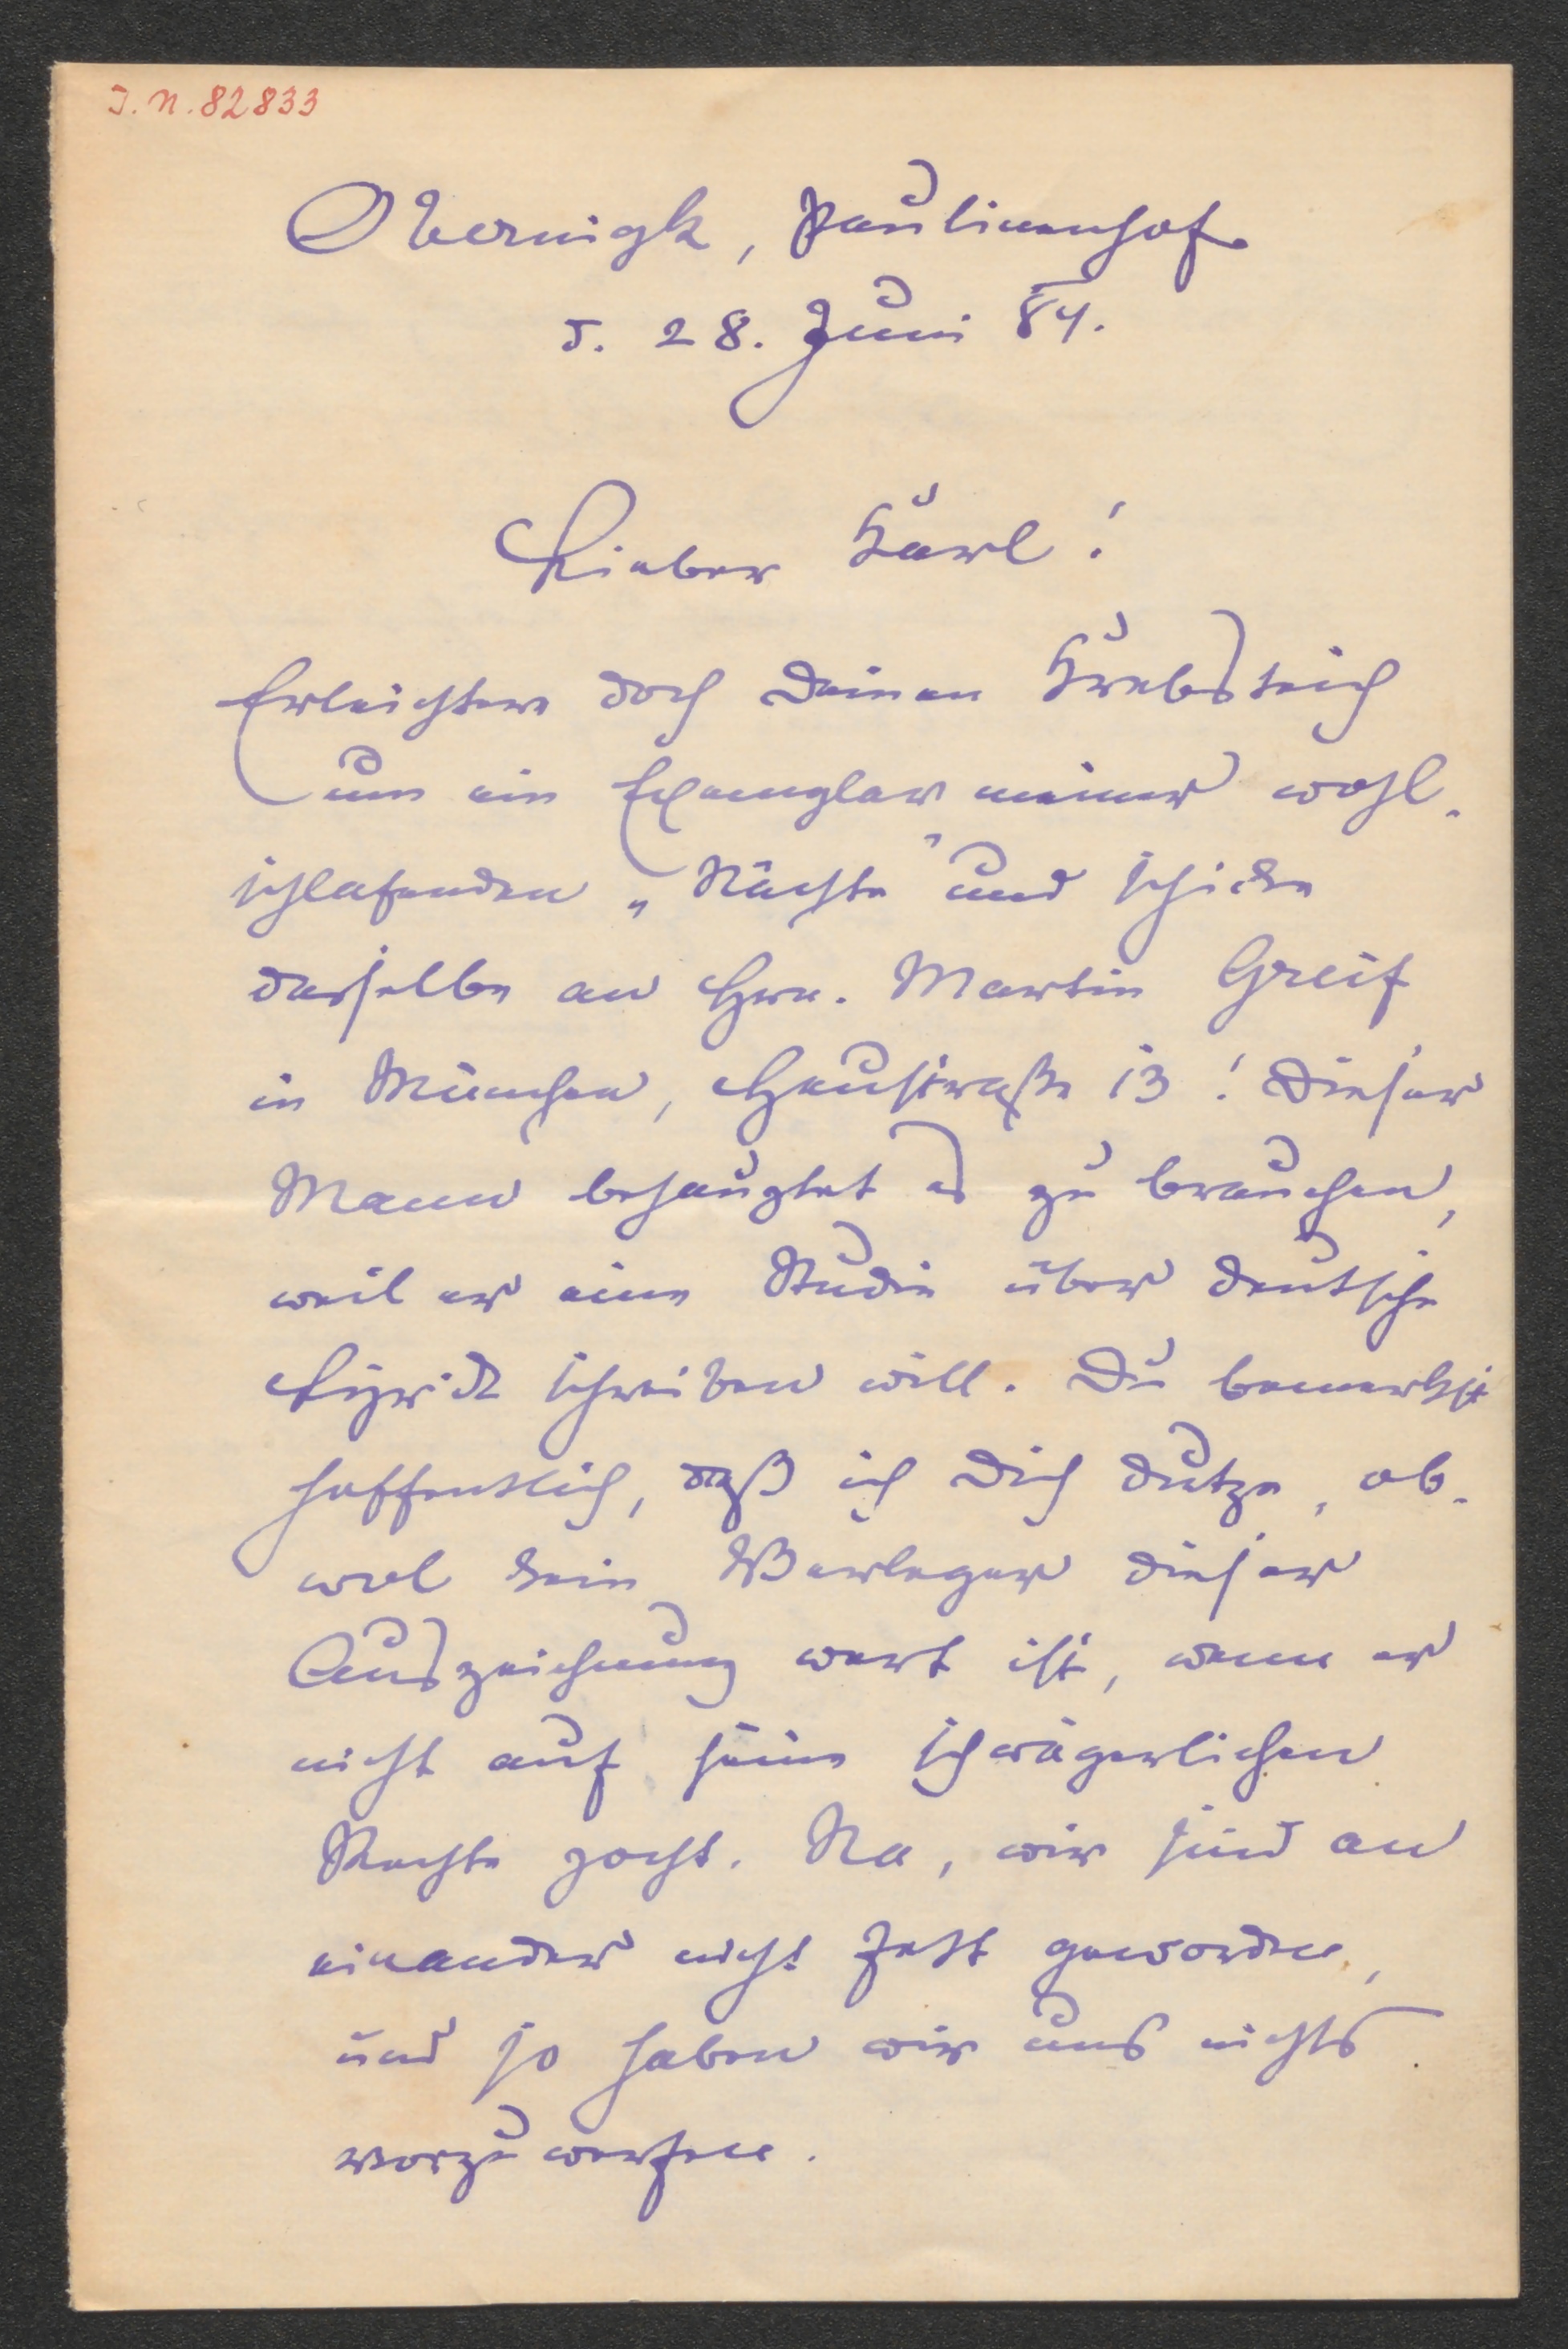 I.N. 82833
Obernigk, Paulinenhof.
d. 28. Juni 84.
Lieber Karl!
Erleichtere doch Deinen Krebsteich
um ein Exemplar meiner wohl-
schlafenden „Nächte" und schicke
dasselbe an Hrn. Martin Greif
in München, Heustraße 13! Dieser
Mann behauptet es zu brauchen,
weil er eine Studie über deutsche
Lyrik schreiben will. Du bemerkst
hoffentlich, daß ich Dich dutze, ob-
wol kein Verleger dieser
Auszeichnung wert ist, wenn er
nicht auf seine schwägerlichen
Rechte pocht. Na, wir sind an
einander nicht fett geworden,
und so haben wir uns nichts
vorzuwerfen.